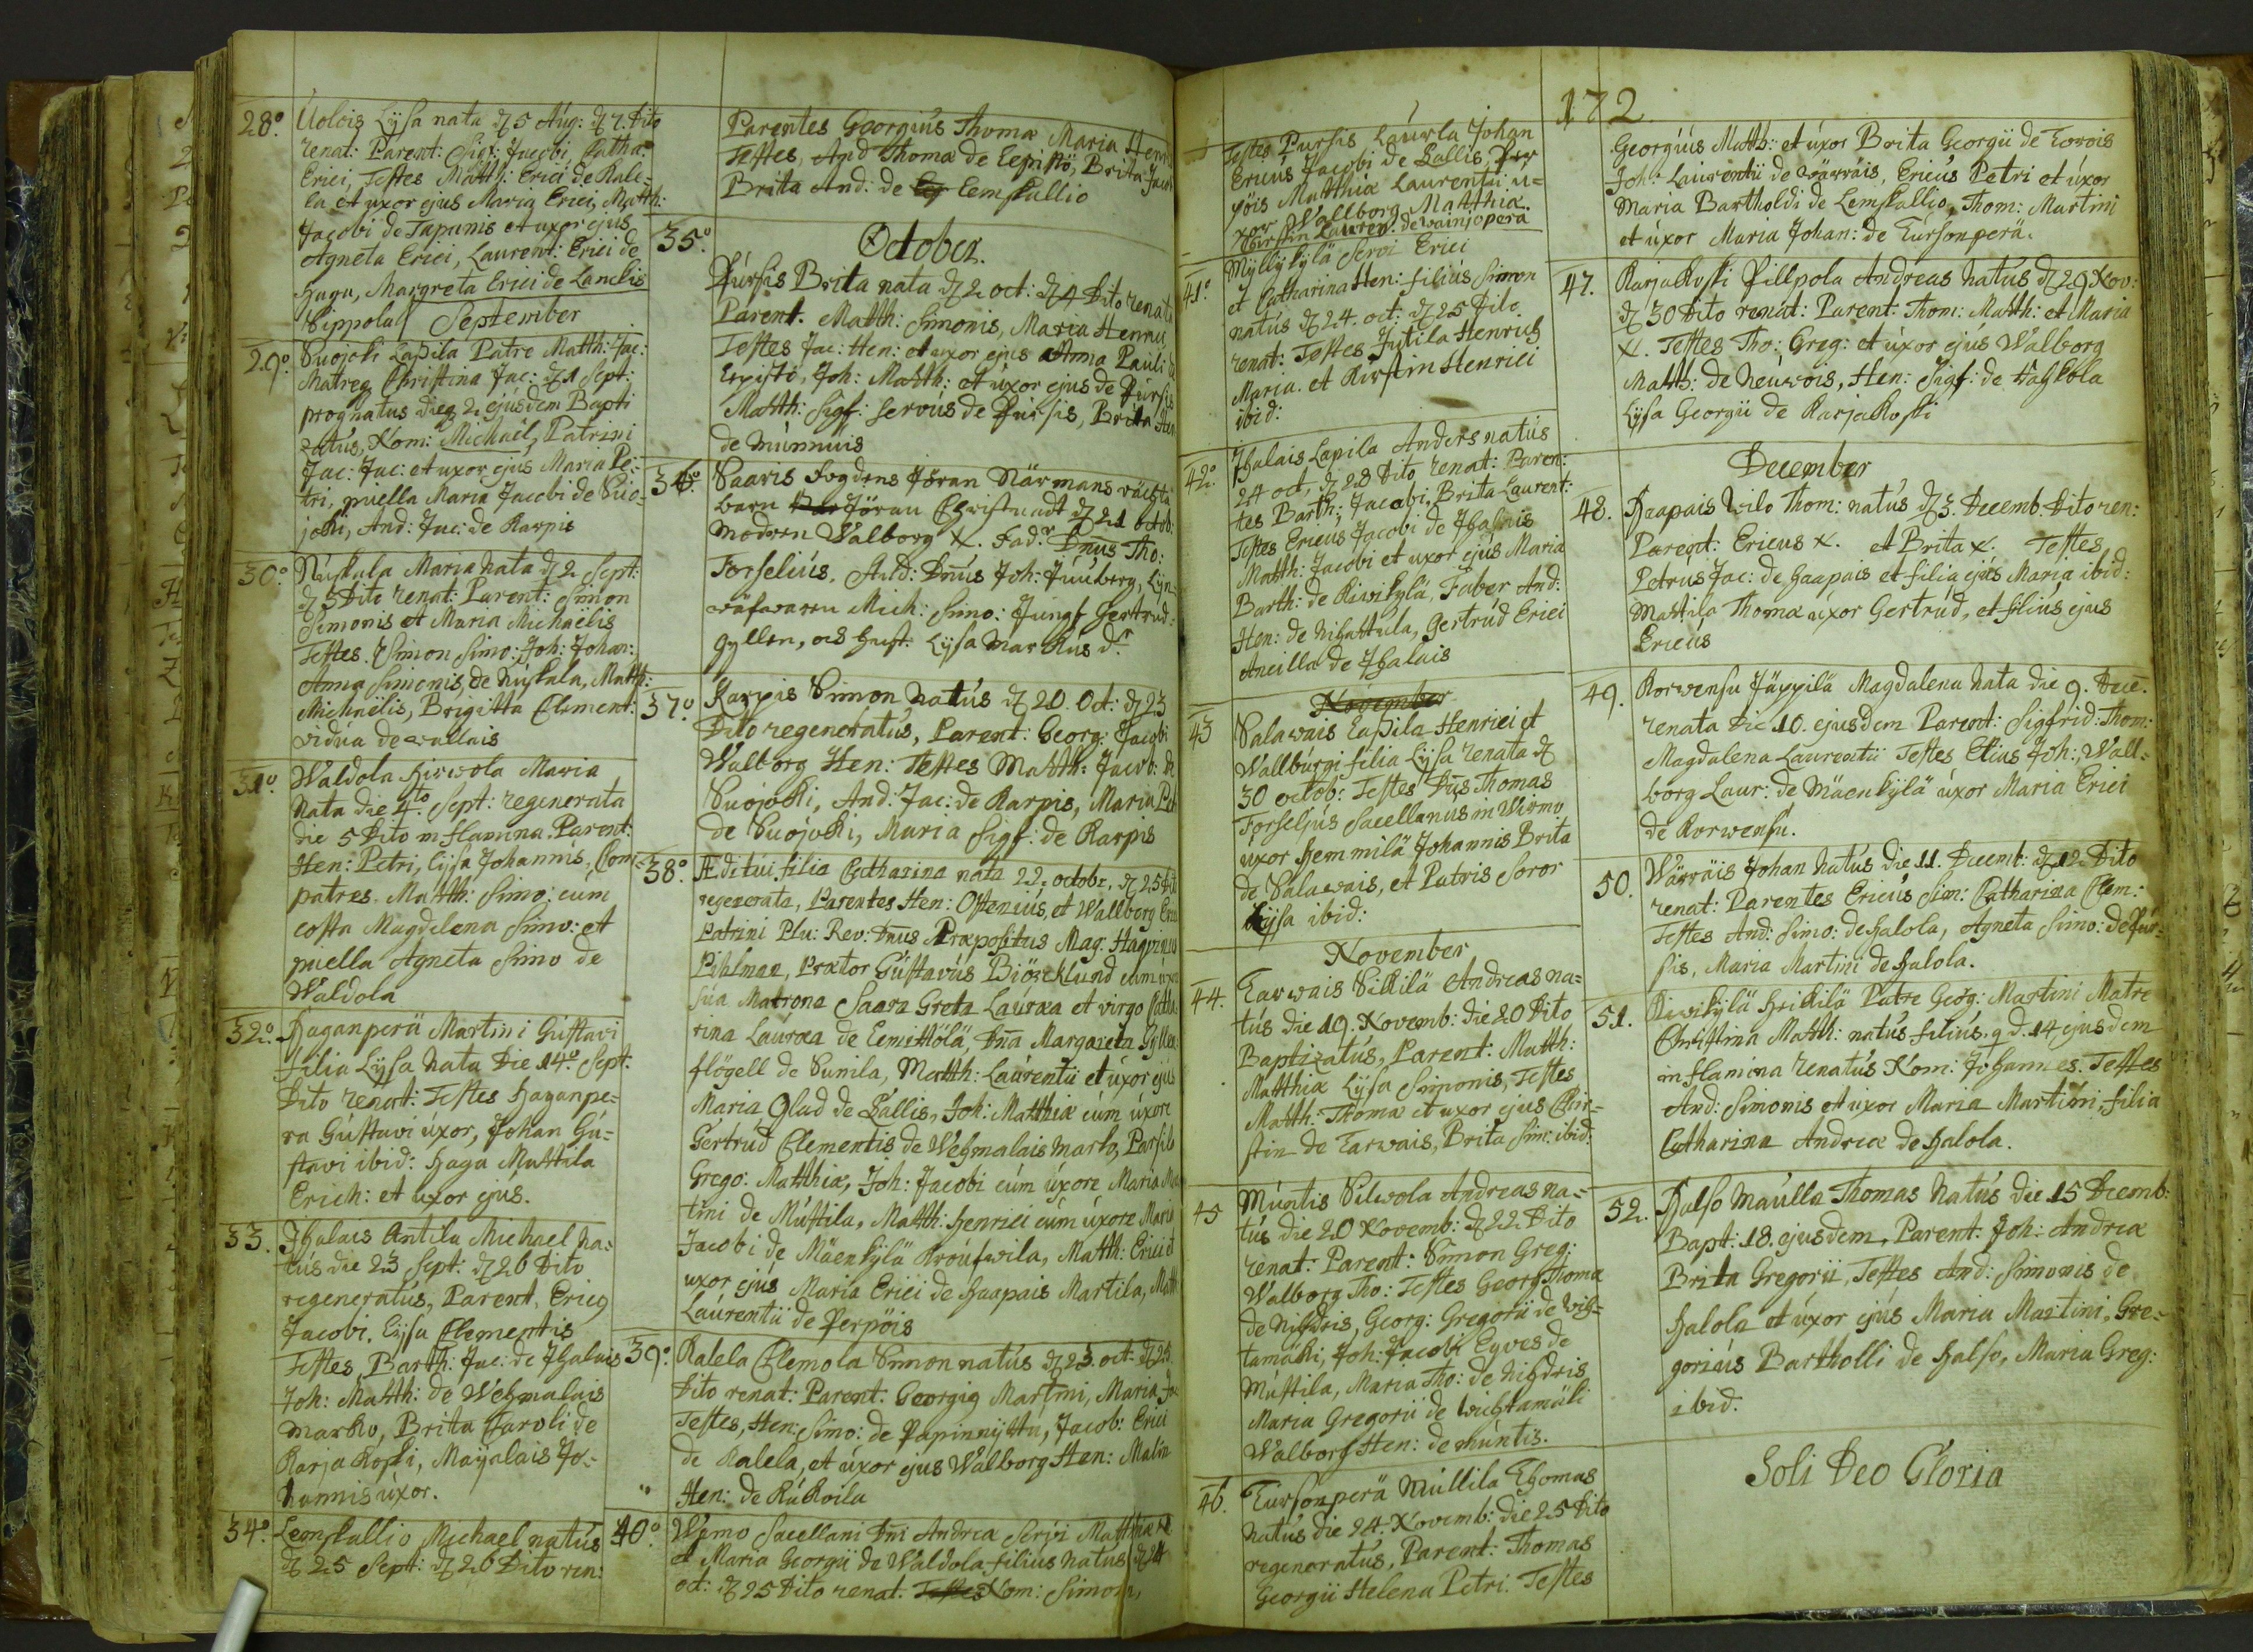 28º. Uolois Lysa nata d 5 Aug: d 7. Dito
renat: Parent: Sigf: Jacobi, Catha:
Erici, Testes Matth: Erici de Kale=
la et uxor ejus Maria Erici, Matth:
Jacobi de Tapunis et uxor ejus
Agneta Erici, Laurent: Erici de
Haga, Margreta Erici de Lanckis
Sippola September
29º. Suojoki Lapila Patre Matth: Jac:
Matreq Christina Jac: d 1 Sept:
prognatus dieq 2 ejusdem Bapti
zatus, Nom: Michaël, Patrini
Jac: Jac: et uxor ejus Maria Pe:
tri, puella Maria Jacobi de Suo=
joki, And: Jac: de Karpis
30º. Nuskala Maria nata d 2 Sept:
d 3 Dito renat: Parent: Simon
Simonis et Maria Michaelis
Testes Simon Simo: Joh: Johan:
Anna Simonis, de Nuskala, Matth:
Michaelis, Brigitta Clement:
vidua de wallais
31º Waldola Hirvola Maria
nata die 4to Sept: regenerata
die 5 Dito in flamina. Parent:
Hen: Petri, Lysa Johannis, Com=
patres. Matth: Simo: cum
costa Magdelena Simo: et
puella Agneta Simo de
Waldola
32º. Haganperä Martini Gustavi
filia Lysa nata Die 14º Sept:
Dito renat: Testes Haganpe=
ra Gustavi uxor, Johan Gu=
stavi ibid: Haga Mattila
Erich: et uxor ejus.
33. Ihalais Antila Michael na=
tus die 23 Sept: d 26 Dito
regeneratus, Parent. Ericq
Jacobi, Lysa Clementis
Testes, Barth: Jac: de Ihalais
Joh: Matth: de Wehmalais
Marko, Brita Caroli de
Karjakoski, Maijalais Jo=
hannis uxor.
34º. Lemskallio Michael natus
d 25 Sept: d 26 Dito ren:
Parentes Georgius Thomæ Maria Henr
Testes, And Thomæ de Eepistö, Brita Jaco
Brita And: de Lemskallio
35º. October.
Pursis Brita nata d 2 oct: d 4 Dito renata
Parent. Matth: Simonis, Maria Henrici
Testes Jac: Hen: et uxor ejus Anna Pauli de
Eepistö, Joh: Matth: et uxor ejus de Pursis
Matth: Sigf: servus de Pursis, Brita Hen
de Munnuis
36º. Saaris fogdens Jöran Närmans
barn Jöran Christnadt d 21 octob:
modren Walborg X. Fad:r Dnus Tho:
Forselius, Anb: Dnus Joh:
Mich: Simo: Jungf Gertrud
Gyllen, och Hust: Lysa Markus dr
37º. Karpis Simon natus d 20. Oct: d 23
Dito regeneratus, Parent: Georg: Jacobi
Walborg Hen: Testes Matth: Jacob: de
Suojoki, And: Jac: de Karpis, Maria Pet
de Suojoki, Maria Sigf: de Karpis
38º. Æditui filia Catharina nata 22. octobr, d 25 Dit
regenerata, Parentes Hen: Ostenius, et Wallborg Erici
Patrini Plu: Rev: Dnus Præpositus Mag: Hagvinus
Pihlman, Prætor Gustavus Biörcklund cum uxore
sua Matrona Saara Greta Lauræa et virgo Catha
rina Lauræa de Lemittölä, Dna Margareta Gyllen
flögell de Sunila, Matth: Laurentii et uxor ejus
Maria Glad de Sallis, Joh: Matthiæ cum uxore
Gertrud Clementis de Wehmalais Marko, Parsila
Grego: Matthiæ, Joh: Jacobi cum uxore Maria Mar
tini de Mustila, Matth: Henrici cum uxore Maria
Jacobi de Mäenkylä Kroufwila, Matth: Erici et
uxor ejus Maria Erici de Haapais Martila, Matth
Laurentii de Perpöis
39º. Kalela Clemola Simon natus d 23. oct: d 25
Dito renat: Parent: Georgiq Martini, Maria Jo
Testes, Hen: Simo: de Papinnyttu, Jacob: Erici
de Kalela, et uxor ejus Walborg Hen: Malin
Hen: de Kukoila
40º. Wirmo Sacellani Dni Andreæ Servi Matthiæ
et Maria Georgii de Waldola filius natus d 24
oct: d 25 Dito renat. Testes Nom: Simon,
172
Testes Pursis Laurla Johan
Ericus Jacobi de Sallis
Matthiæ Laurentii
xor Wallborg Matthiæ.
Kirstin Lauren: de wainjoperä
41º. Myllykylä servi Erici
et Catharina Hen: filius Simon
natus d 24. oct: d 25 Dito
renat: Testes Jutila Henrich
Maria. et Kirstin Henrici
ibid:
42º. Ihalais Lapila Anders natus
24 oct, d 28 Dito renat: Paren:
tes Barth: Jacobi: Brita Laurent:
Testes Ericus Jacobi de Ihalais
Matth: Jacobi et uxor ejus Maria
Barth: de Kivikylä, Faber And:
Hen: de Nihattula, Gertrud Erici
Ancilla de Ihalais
November
43 Salawais Lapila Henrici et
Wallburgi filia Lysa renata d
30 octob: Testes Dns Thomas
Forseljus Sacellanus in Wirmo
uxor Hemmilä Johannis Brita
de Salawais, et Patris Soror
Lysa ibid:
November
44. Tarwais Sikilä Andreas na=
tus die 19. Novemb: die 20 Dito
Baptizatus, Parent: Matth:
Matthiæ Lysa Simonis, Testes
Matth: Thomæ et uxor ejus Chir=
stin de Tarwais, Brita Sim: ibid:
45 Muntis Silwola Andreas na=
tus die 20 Novemb: d 22 Dito
renat: Parent: Simon Greg:
Walborg Tho: Testes Georg Thomæ
de Nihdris, Georg: Gregorii de wih=
tamäki, Joh: Jacobi Eyves de
Mustila, Maria Tho: de Nihdris
Maria Gregorii de wichtamäki
Walborg Hen: de Muntis.
46. Tursonperä Mullila Thomas
natus die 24. Novemb: die 25 Dito
regeneratus, Parent: Thomas
Georgii Helena Petri: Testes
Georgius Matth: et uxor Brita Georgii de Torois
Joh: Laurentii de wärräis, Ericus Petri et uxor
Maria Bartholdi de Lemskallio, Thom: Martini
et uxor Maria Johan: de Tursonperä.
47. Karjakoski Pillpola Andreas natus d 29 Nov:
d 30 Dito renat: Parent: Thom: Matth: et Maria
X. Testes Tho: Greg: et uxor ejus Walborg
Matth: de Neuvois, Hen: Sigf: de Taskola
Lysa Georgii de Karjakoski
December
48. Haapais wilo Thom: natus d 3. Decemb. Dito ren:
Parent: Ericus X. et Brita X. Testes
Petrus Jac: de Haapais et filia ejus Maria ibid:
Mattila Thomæ uxor Gertrud, et filius ejus
Ericus
49. Korwensu Jäppilä Magdalena nata die 9. Dece.
renata Die 10. ejusdem Parent: Sigfrid: Thom:
Magdalena Laurentii Testes Elius Joh:, Wall=
borg Laur: de Mäenkylä uxor Maria Erici
de Korwensu.
50. Wärräis Johan natus die 11. Decemb: d 12 Dito
renat: Parentes Ericus Sim: Catharina Clem:
Testes And: Simo: de Halola, Agneta Simo: de Pur=
sis, Maria Martini de Halola.
51. Kiwikylä Heikilä Patre Geog: Martini Matre
Christina Matth: natus filius q d. 14 ejusdem
in flamina renatus Nom: Johannes. Testes
And: Simonis et uxor Maria Martini, filia
Catharina Andreæ de Halola.
52. Halso Maulla Thomas natus die 15 Decemb:
Bapt: 18. ejusdem, Parent: Joh: Andreæ
Brita Gregorii, Testes And: Simonis de
Halola et uxor ejus Maria Martini, Gre=
gorius Bartholli de Halso, Maria Greg:
ibid.
Soli Deo Gloria